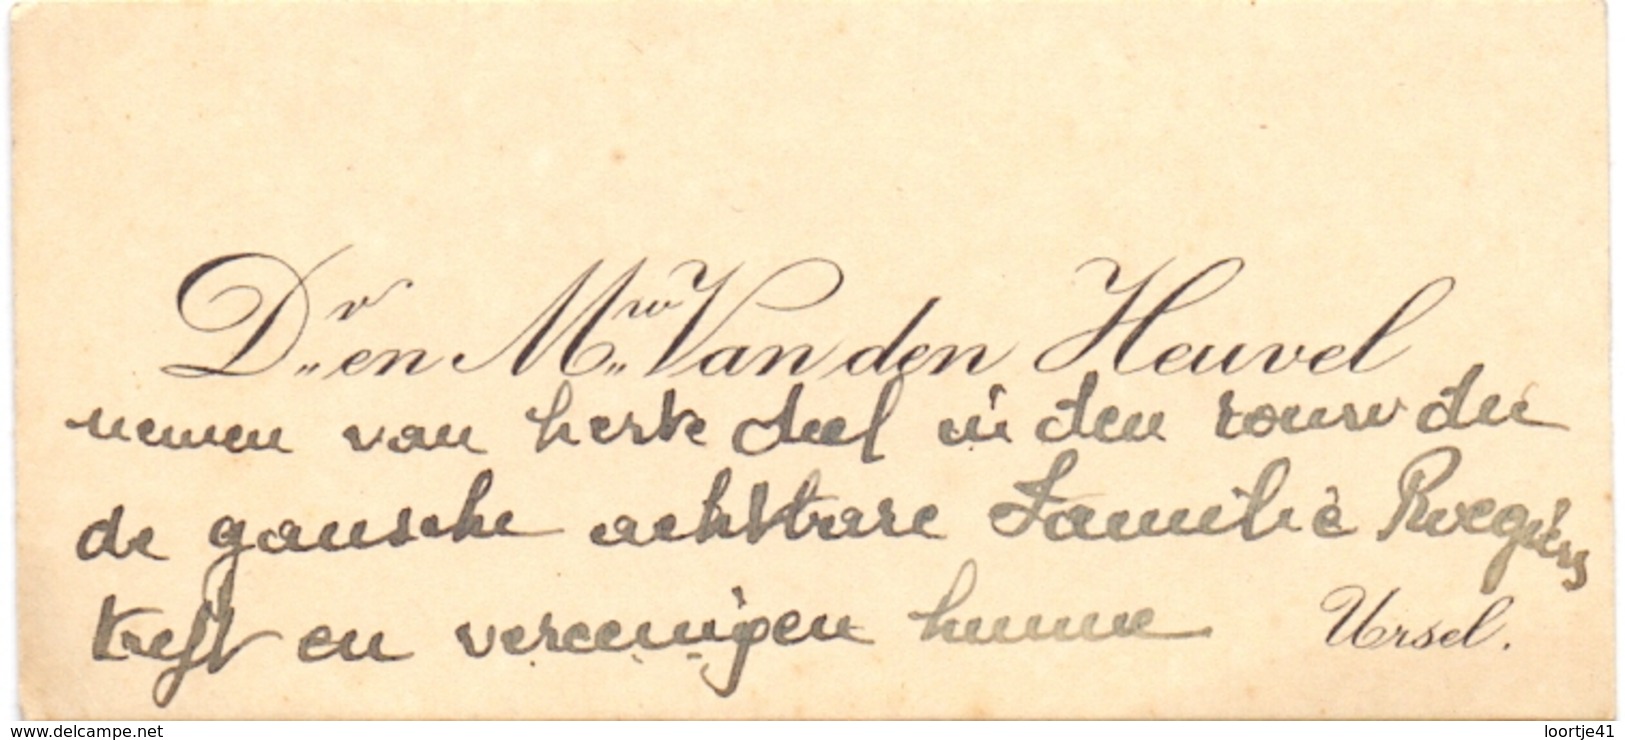 Dr. en Mw. Van den Heuvel
nemen van herte deel in den rouw die
de gansche achtbare Familie Roegiers
treft en vereenigen hunne
Ursel.
www.delcampe.net
loortje41